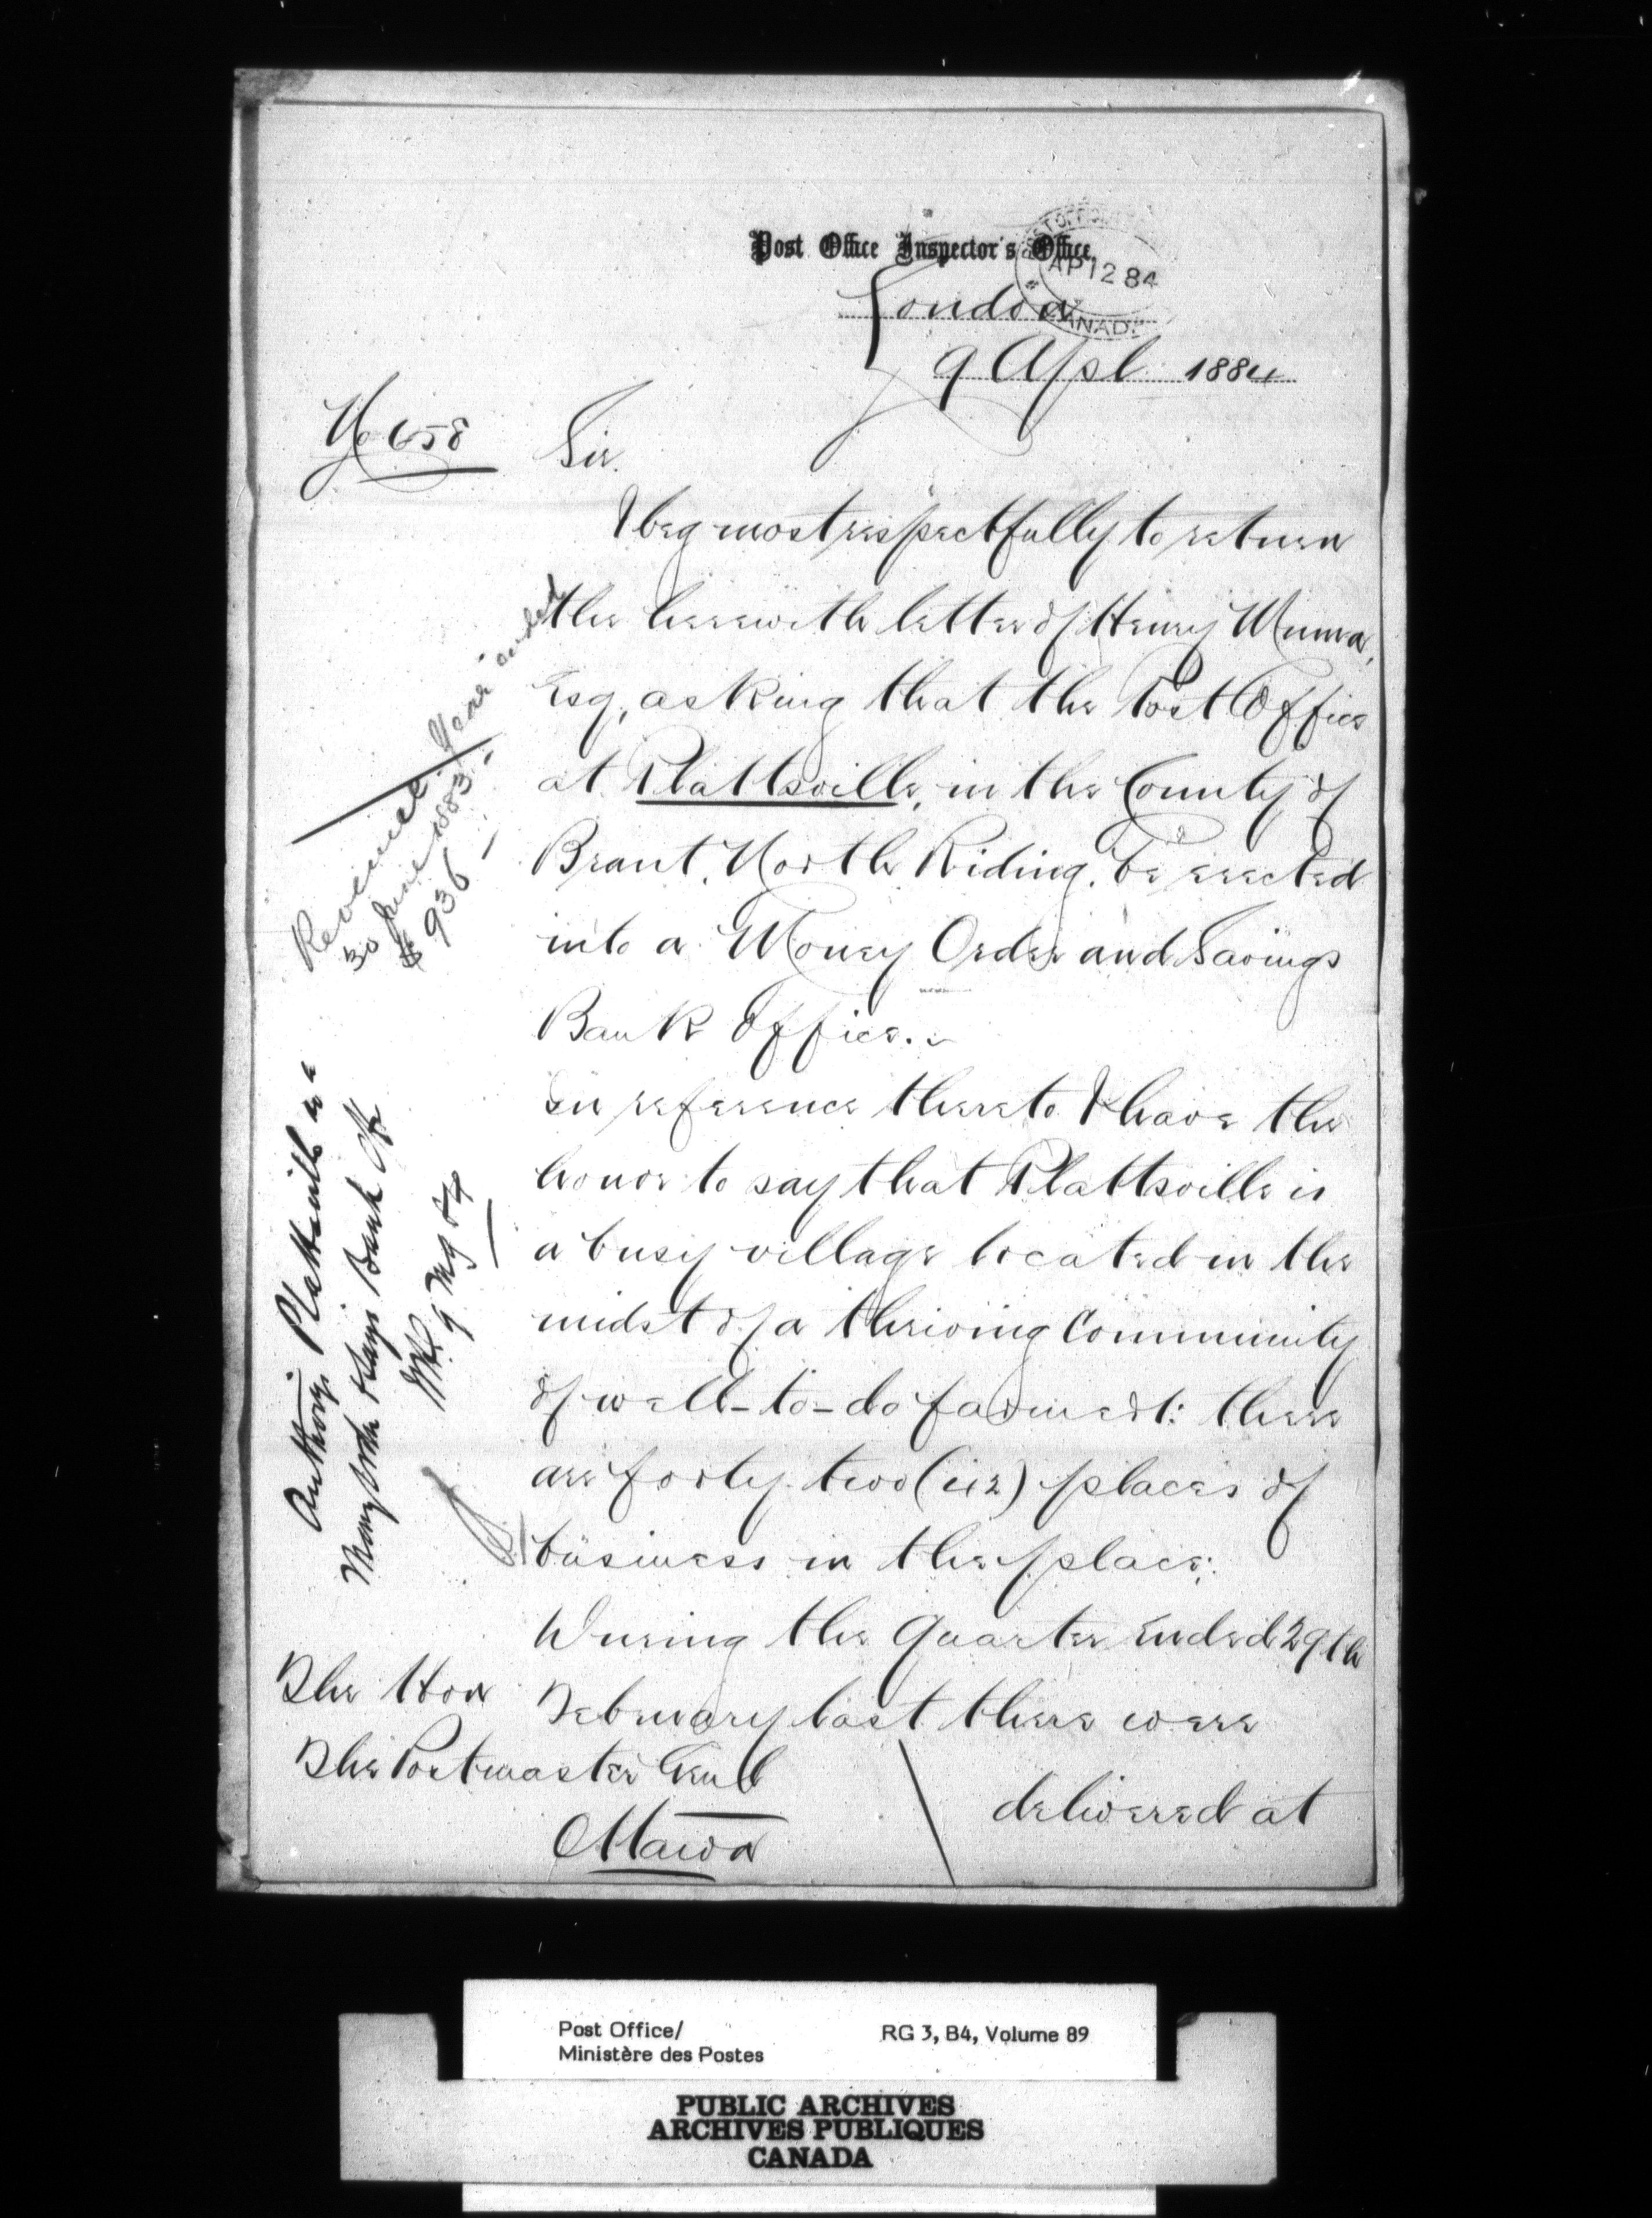 Post Office Inspector's Office,
AP 12 84
CANADA
London
9 Apl 1884
No 658
Sir.
I beg most respectfully to return
the herewith letter of Henry Munro,
Esq, asking that the Post Office
at Plattsville, in the County of
Brant, North Riding, be erected
into a Money Order and Savings
Bank Office.
In reference thereto I have the
honor to say that Plattsville is
a busy village located in the
midst of a thriving Community
of well-to-do farmers: there
are forty two (42) places of
business in the place:
During the Quarter Ended 29th
February last there were
delivered at
The Hon
The Postmaster Genl
Ottawa
Revenue Year ended
30 June 1883 -
$936
Authorize Plattsville as a
Money Order & Savgs Bank Ofc
9 My 84
Post Office/
Ministère des Postes
RG 3, B4, Volume 89
PUBLIC ARCHIVES
ARCHIVES PUBLIQUES
CANADA